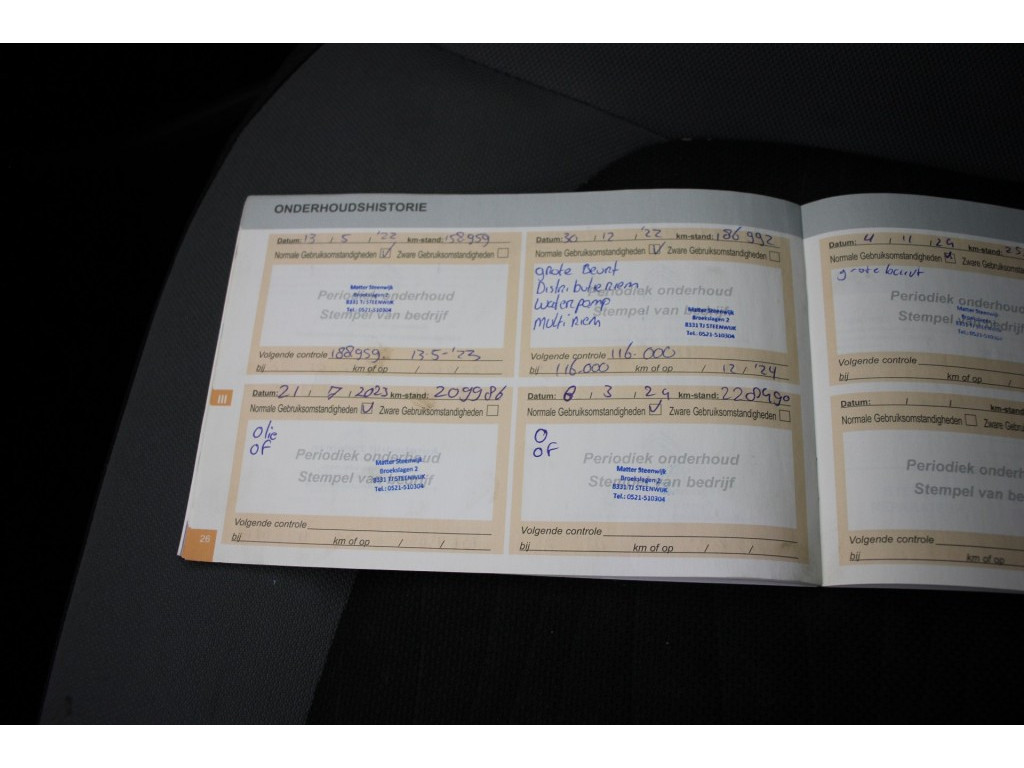 ONDERHOUDSHISTORIE
Datum: 13 / 5 / '22 km-stand: 158959
Normale Gebruiksomstandigheden Zware Gebruiksomstandigheden
Periodiek onderhoud
Stempel van bedrijf
Matter Steenwijk
Broekslagen 2
8331 TJ STEENWIJK
Tel.: 0521-510304
Volgende controle 188959. 13-5-'23
bij km of op / /
Datum: 30 / 12 / '22 km-stand: 186992
Normale Gebruiksomstandigheden Zware Gebruiksomstandigheden
grote Beurt
Distributieriem
Waterpomp
Multiriem
Periodiek onderhoud
Stempel van bedrijf
Matter Steenwijk
Broekslagen 2
8331 TJ STEENWIJK
Tel.: 0521-510304
Volgende controle 116.000
bij 116.000 km of op / 12 / '24
Datum: 4 / 11 / 24 km-stand: 25
Normale Gebruiksomstandigheden Zware
grote beurt
Periodiek onderh
Stempel van bedrijf
Matter Steenwijk
Broekslagen 2
8331 TJ STEENWIJK
Tel.: 0521-510304
Volgende controle
bij km of op
III
Datum: 21 / 7 / 2023 km-stand: 209986
Normale Gebruiksomstandigheden Zware Gebruiksomstandigheden
Olie
OF
Periodiek onderhoud
Stempel van bedrijf
Matter Steenwijk
Broekslagen 2
8331 TJ STEENWIJK
Tel.: 0521-510304
Volgende controle
bij km of op / /
Datum: / 3 / 24 km-stand: 228490
Normale Gebruiksomstandigheden Zware Gebruiksomstandigheden
O
OF
Periodiek onderhoud
Stempel van bedrijf
Matter Steenwijk
Broekslagen 2
8331 TJ STEENWIJK
Tel.: 0521-510304
Volgende controle
bij km of op / /
Datum: / / km-stand
Normale Gebruiksomstandigheden Zware Geb
Periodiek onderh
Stempel van bed
Volgende controle
bij km of op
26